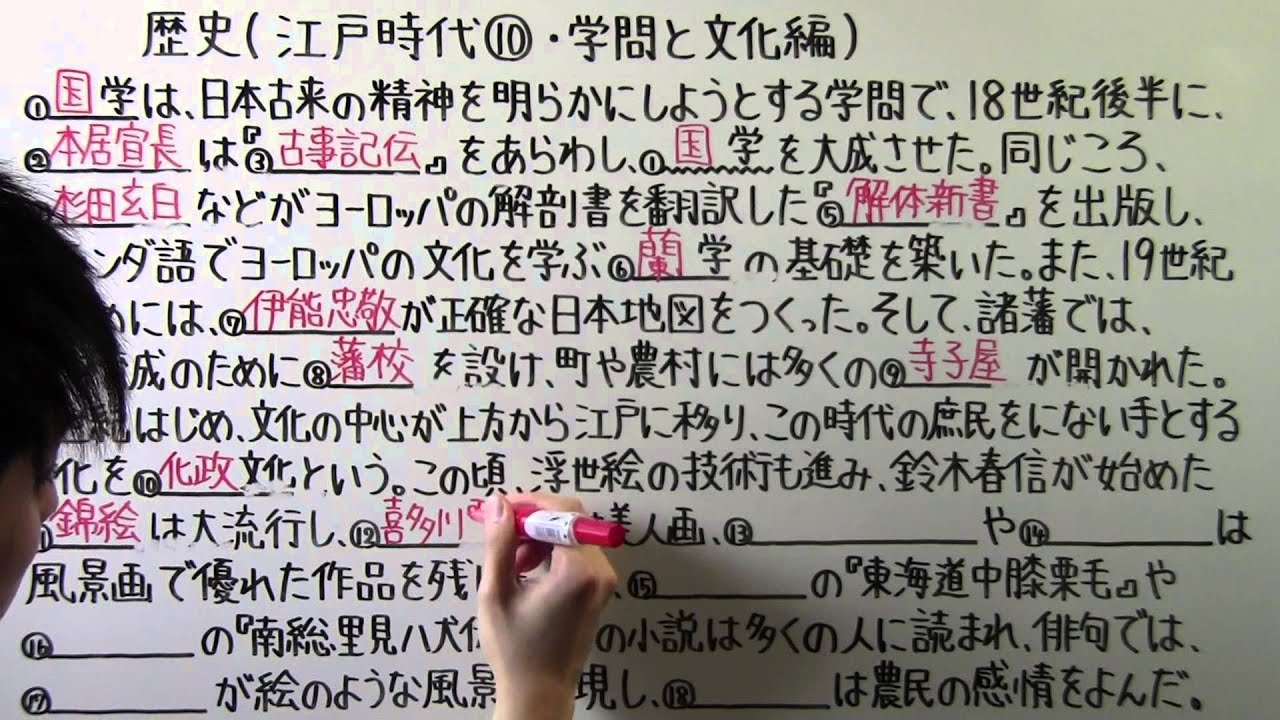 歴史(江戸時代⑩・学問と文化編)
①国学は、日本古来の精神を明らかにしようとする学問で、18世紀後半に、
②本居宣長は『③古事記伝』をあらわし、①国学を大成させた。同じころ、
杉田玄白などがヨーロッパの解剖書を翻訳した『⑤解体新書』を出版し、
ンダ語でヨーロッパの文化を学ぶ⑥蘭学の基礎を築いた。また、19世紀
には、⑦伊能忠敬が正確な日本地図をつくった。そして、諸藩では、
成のために⑧藩校を設け、町や農村には多くの⑨寺子屋が開かれた。
はじめ、文化の中心が上方から江戸に移り、この時代の庶民をにない手とする
化を⑩化政文化という。この頃、浮世絵の技術も進み、鈴木春信が始めた
錦絵は大流行し、⑫喜多川 美人画、⑬ や⑭ は
風景画で優れた作品を残 、⑮ の『東海道中膝栗毛』や
⑯ の『南総里見八犬伝 の小説は多くの人に読まれ、俳句では、
⑰ が絵のような風景 現し、⑱ は農民の感情をよんだ。